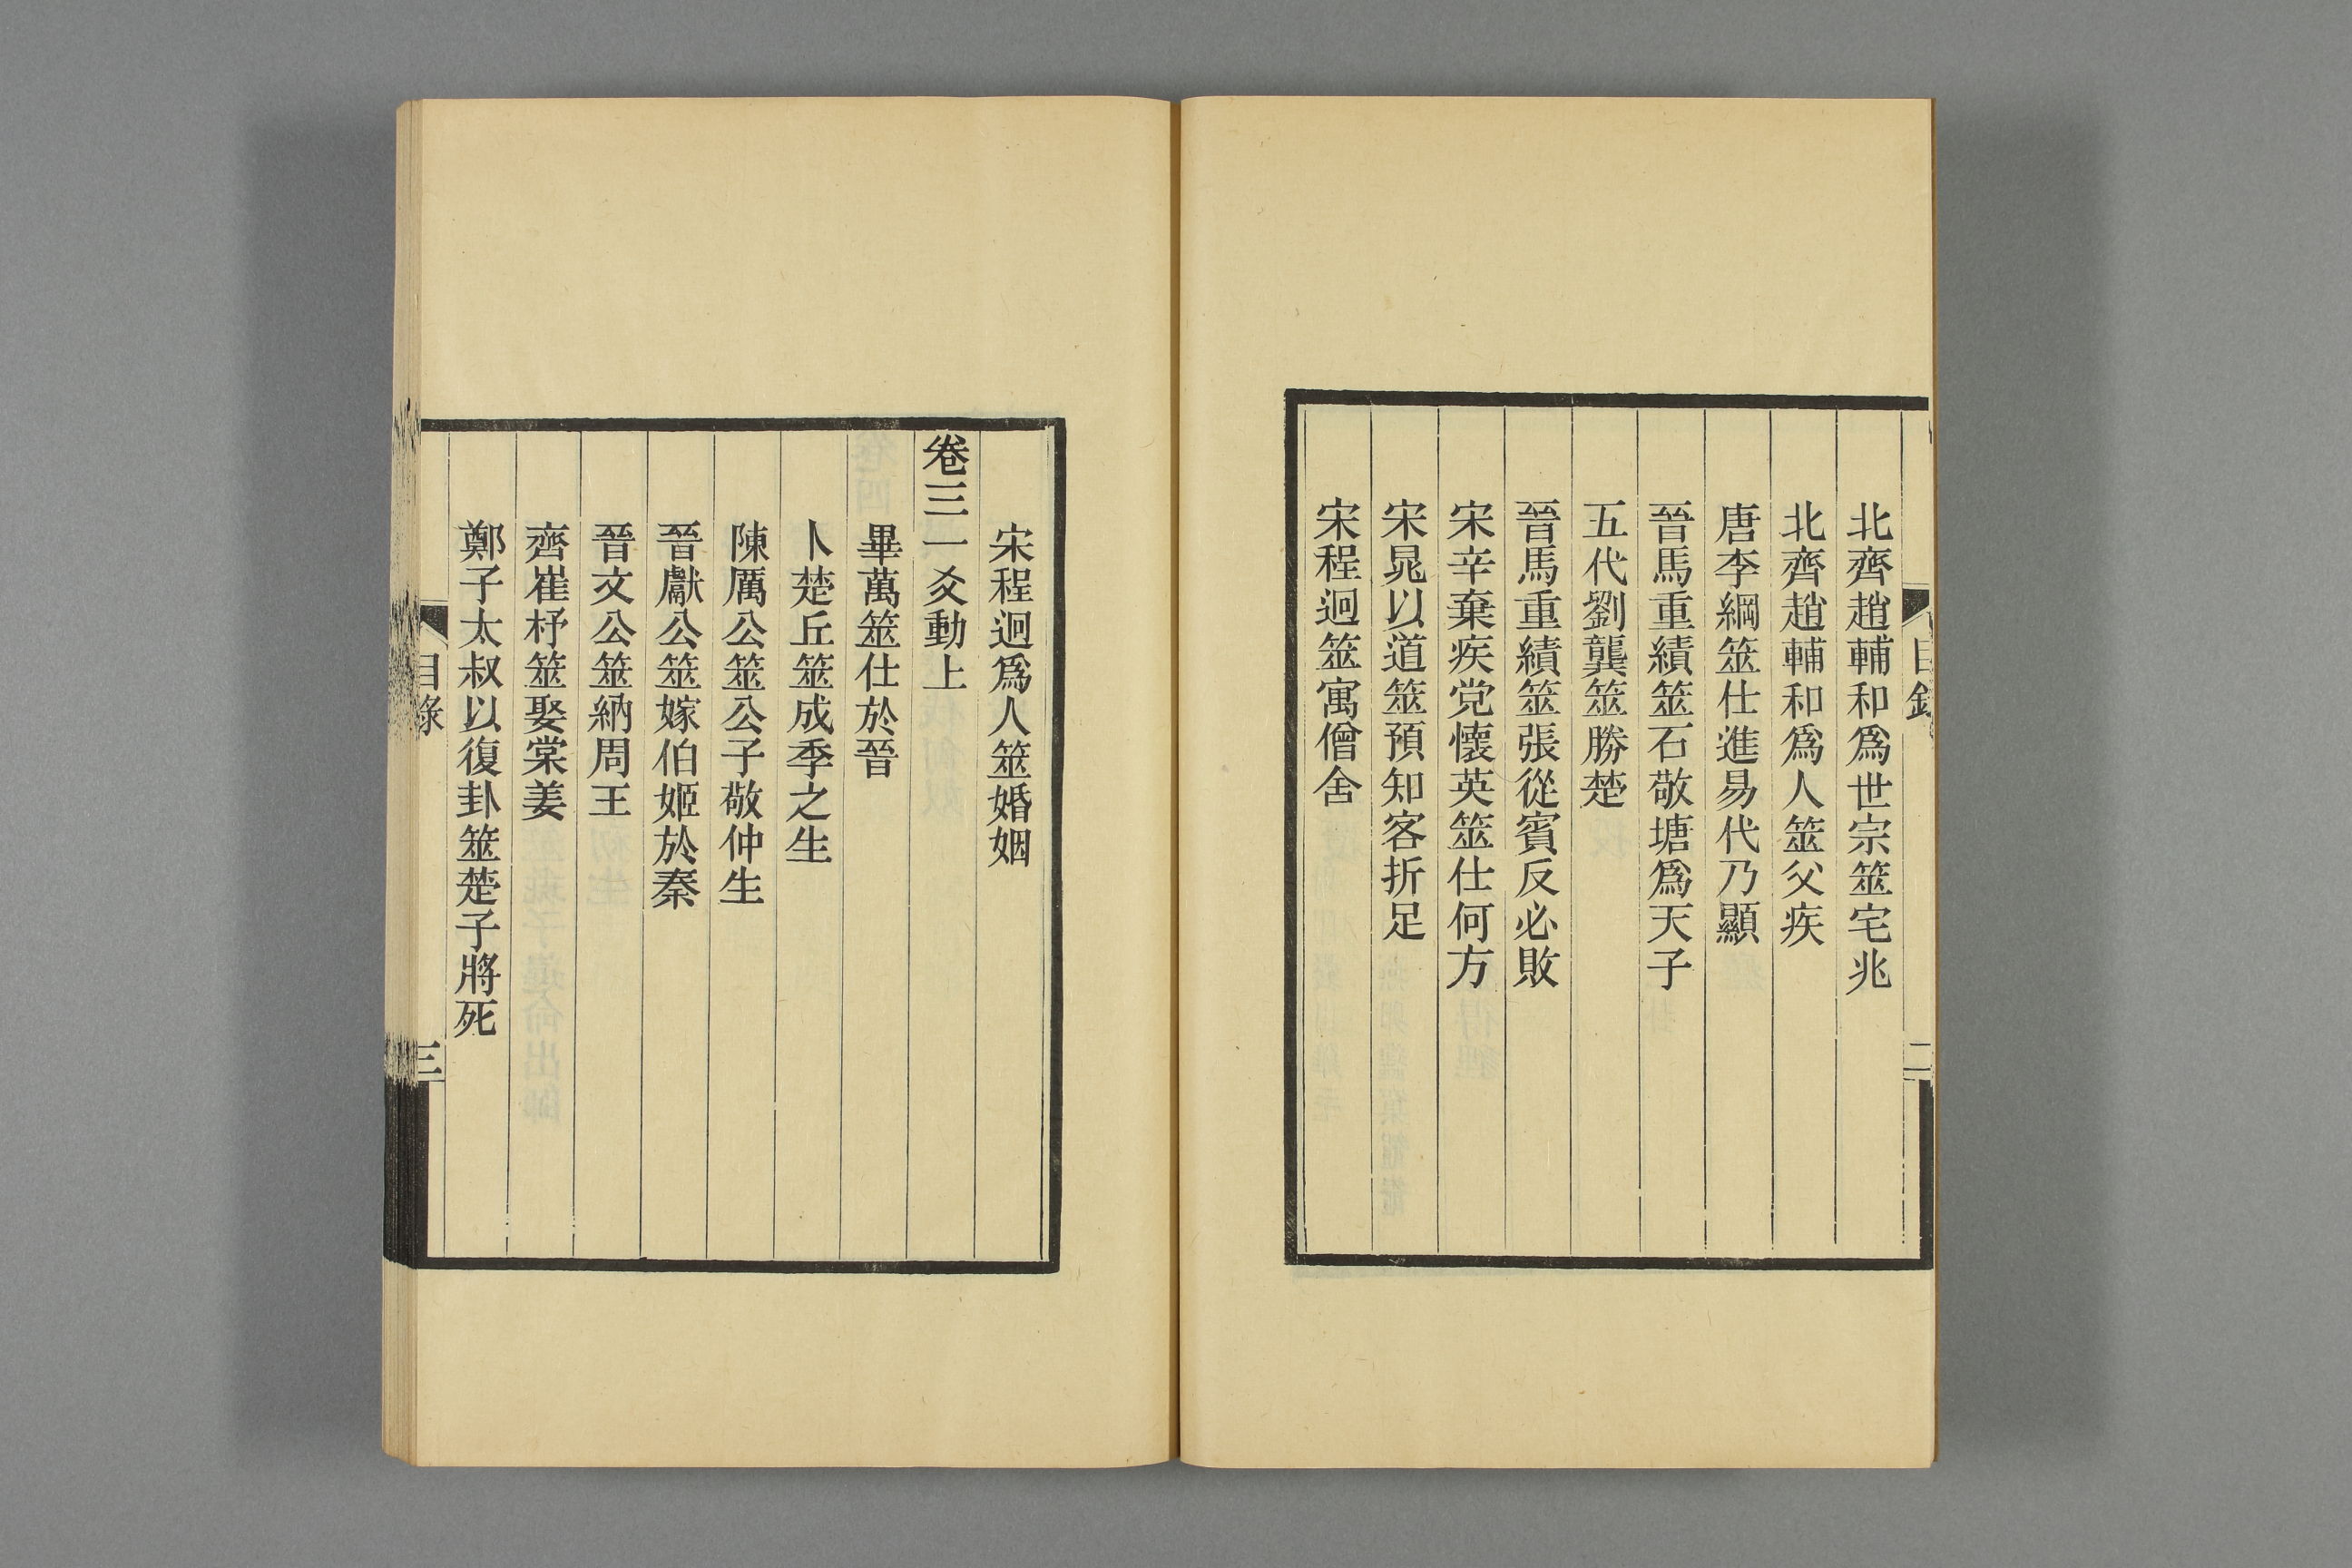 目錄
二
北齊趙輔和爲世宗筮宅兆
北齊趙輔和爲人筮父疾
唐李綱筮仕進易代乃顯
晉馬重績筮石敬塘爲天子
五代劉龑筮勝楚
晉馬重績筮張從賓反必敗
宋辛棄疾党懷英筮仕何方
宋晁以道筮預知客折足
宋程迥筮寓僧舍
宋程迥爲人筮婚姻
卷三一爻動上
畢萬筮仕於晉
卜楚丘筮成季之生
陳厲公筮公子敬仲生
晉獻公筮嫁伯姬於秦
晉文公筮納周王
齊崔杼筮娶棠姜
鄭子太叔以復卦筮楚子將死
目錄
三